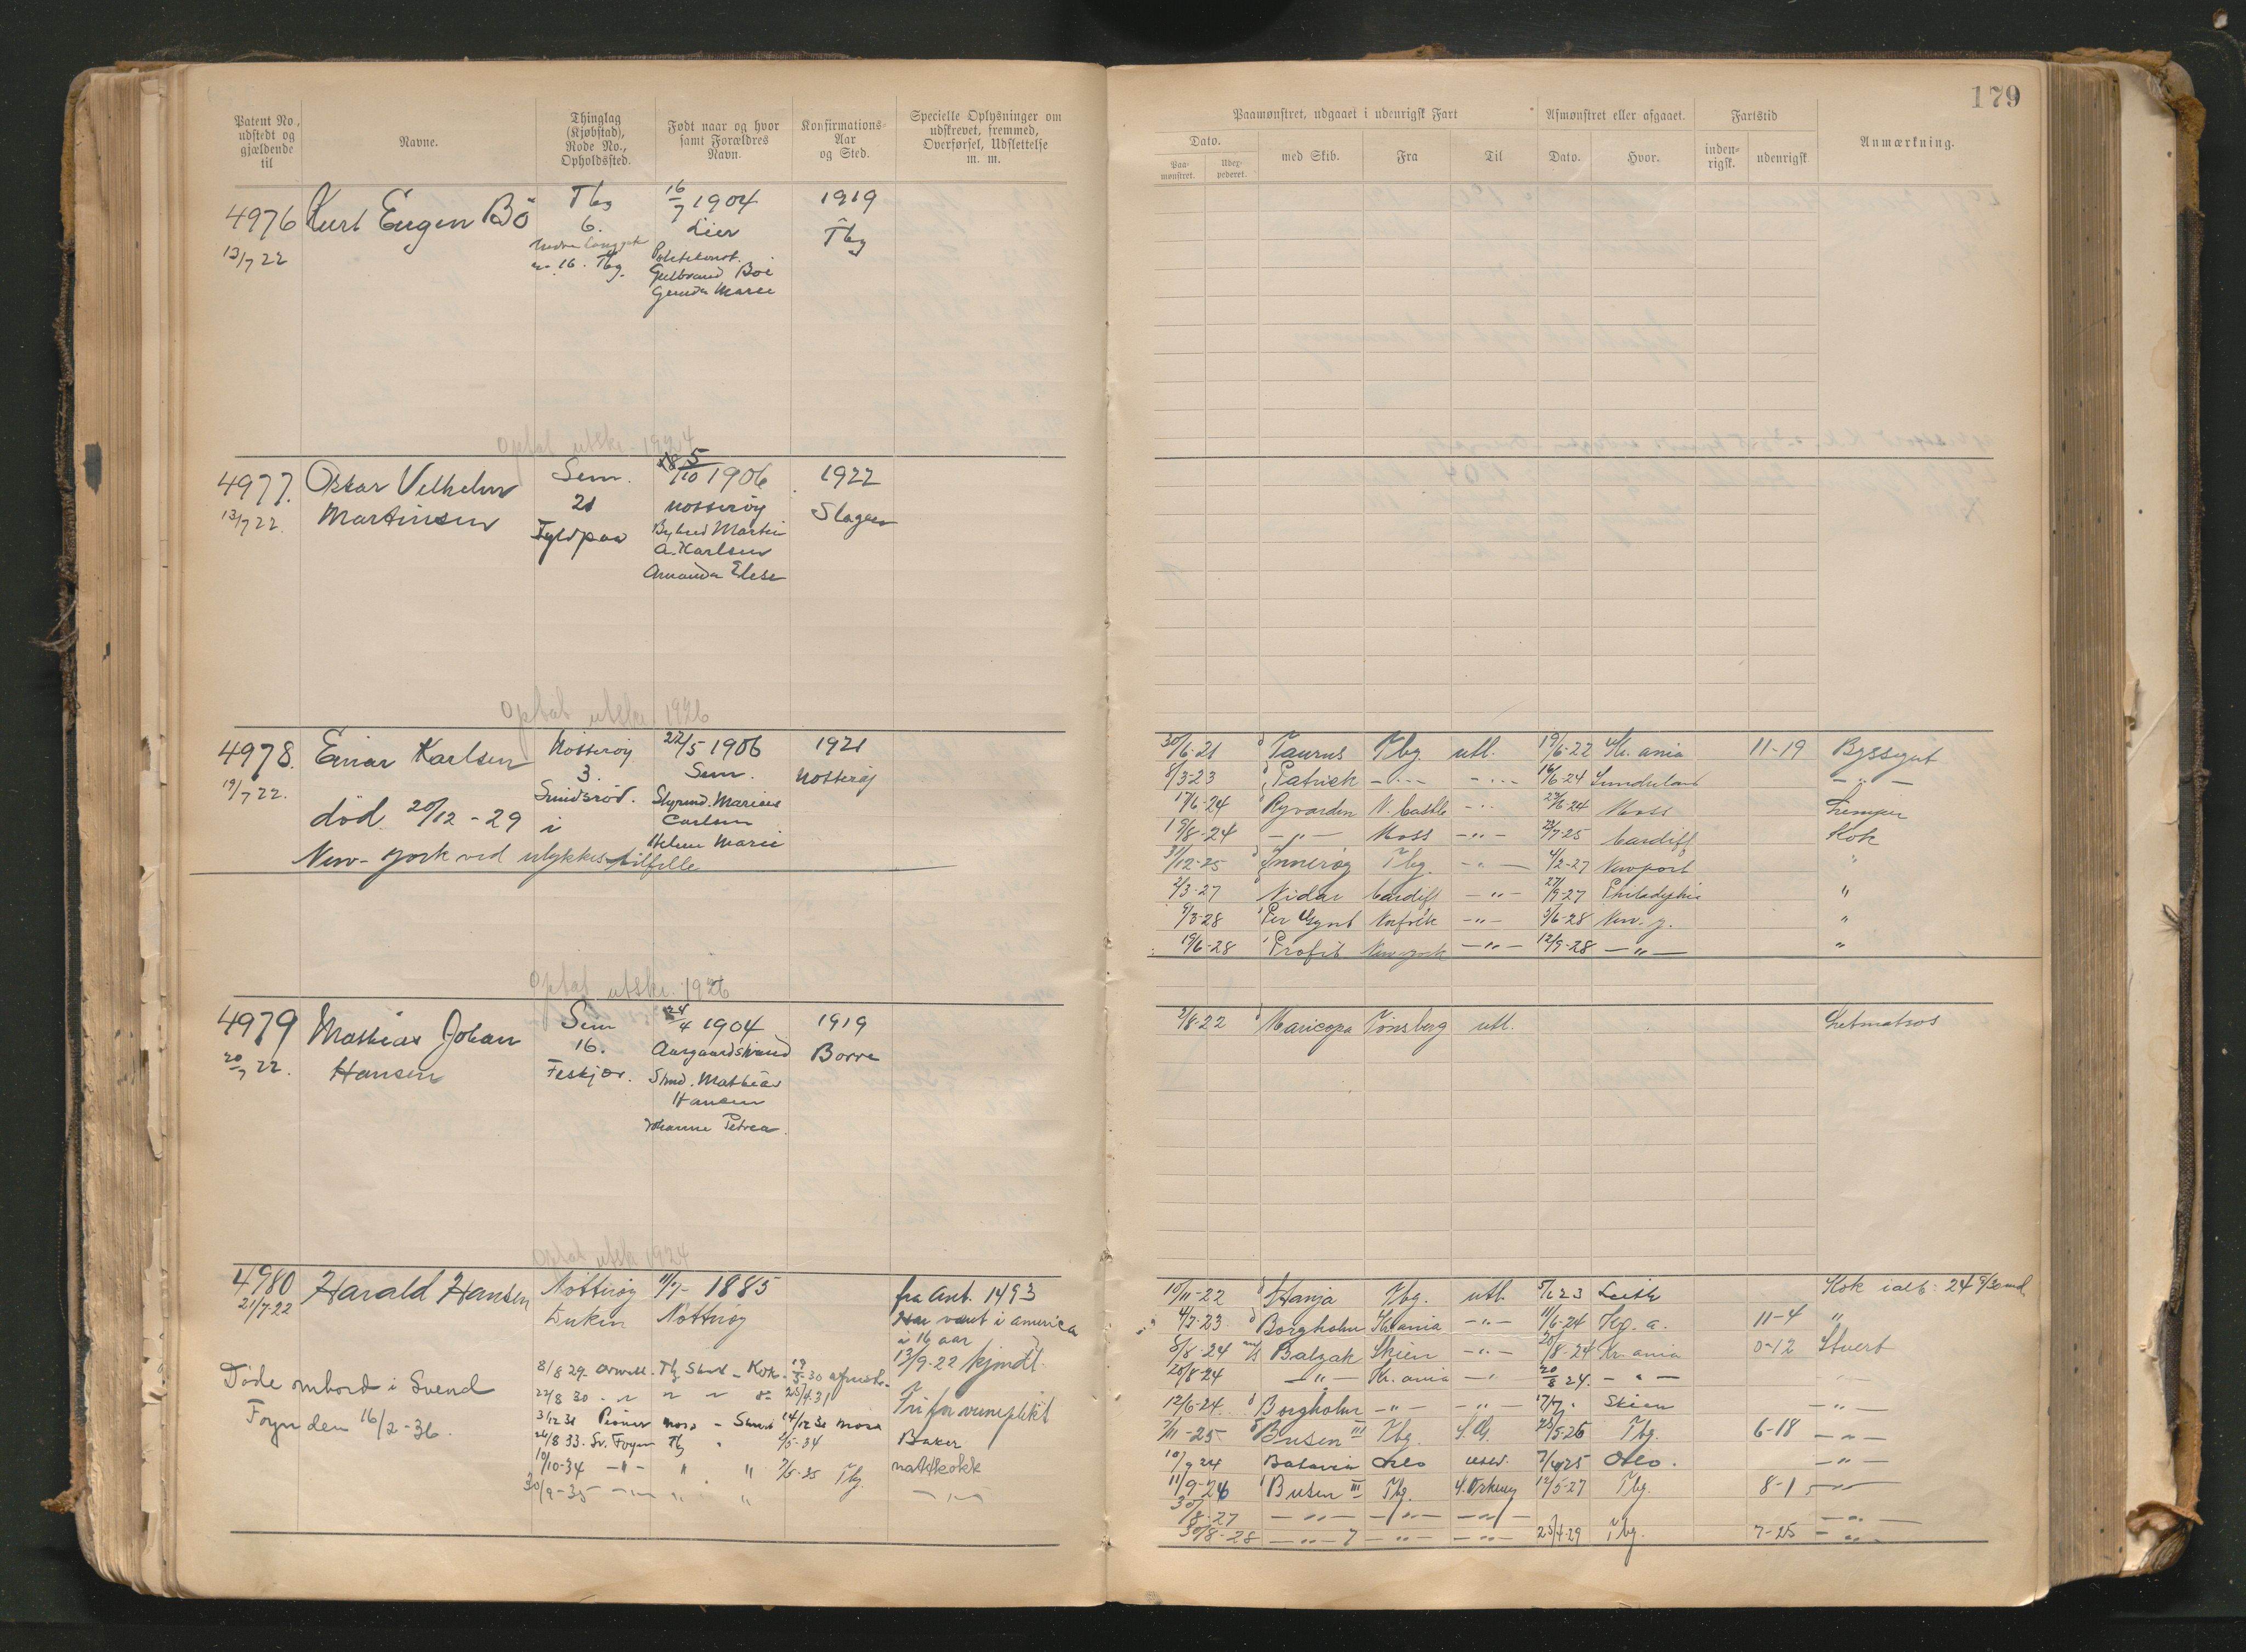 179
Patent No.,
udstedt og
gjældende
til
Navne.
Thinglag
(Kjøbstad),
Rode No.,
Opholdssted.
Født naar og hvor
samt Forældres
Navn.
Konfirmations-
Aar
og Sted.
Specielle Oplysninger om
udskrevet, fremmed,
Overførsel, Udslettelse
m. m.
Paamønstret, udgaaet i udenrigsk Fart
Dato.
Paa-
mønstret.
med Skib.
Fra
Til
Afmønstret eller afgaaet.
Dato.
Hvor.
Fartstid
inden-
rigsk.
udenrigsk
Anmærkning.
4976
13/7 22
Kurt Eugen Bö
Tbg
6.
no. 16. Tbg.
16/7 1904
Lier
Politikonst.
Gulbrand Böe
Gunda Marie
1919
Tbg
Optat utskr. 1924
4977.
13/7 22.
Oskar Vilhelm
Martinsen
Sem.
21
Fyldpaa
1906
Nøtterøy
Martin
A. Karlsen
Amanda Elise
1922
Slagen
Optat utskr. 1926
4978.
19/7 22.
Einar Karlsen
død 20/12 - 29 i
New-York ved ulykkestilfelle
Nøtterøy
3.
Smidsrød.
22/5 1906
Sem.
Styrmd. Marius
Carlsen
Helene Marie
1921
Nøtterøy
30/6-21 Taurus Tbg. utl. 19/6-22 Kr.ania 11-19 Byssegut
8/3-23 Patrick -"- -"- 16/6-24 Sunderland -"-
17/6-24 Ryvarden N. Castle -"- 23/6-24 Moss Lemper
19/8-24 -"- Moss -"- 23/7-25 Cardiff Kok
31/12-25 Innerøy Tbg. -"- 4/2-27 Newport "
2/3-27 Nidar Cardiff -"- 27/9-27 Philadelphia "
9/3-28 Per Gynt Norfolk -"- 5/6-28 New-y. "
19/6-28 Profit New york -"- 12/9-28 -"- "
Optat utskr. 1926
4979
20/7 22.
Mathias Johan
Hansen
Sem
16.
Feskjær.
24/4 1904
Aasgaardstrand
Smd. Mathias
Hansen
Johanne Petrea.
1919
Borre
2/8-22 Maricopa Tönsberg utl. Letmatros
Optat utskr 1924
4980
21/7-22
Harald Hansen
Nøtterøy
Duken
11/7 - 1885
Nøtterøy
fra Ant. 1493
Har vært i america
i 16 aar
13/9-22 kjendt.
Fri for verneplikt
Døde ombord i Svend
Foyn den 16/2-36.
8/8 29- Orwell - Tbg Stuert - Kok -
22/8 30 - " " " do 25/4.31
3/12 31 Pioner Moss - Stuert 14/12 31 Moss
26/8 33. Sv. Foyn Tbg " 2/5-34 Baker
10/10-34 -"- " " 7/5-35 Tbg. nattkokk
30/9-35 -"- " " -"-
10/11-22 Hanja Tbg. utl. 5/1 23 Leith Kok ialt: 24 9/30 md
4/3-23 Borgholm Kr.ania -"- 11/6-24 Kg. a. 11-4 "
8/8-24 Balzak Skien -"- 20/8-24 Kr.ania 0-12 Stuert
20/8-24 -"- Kr.ania -"- 20/8 24. -"- -"-
12/6-24. Borgholm -"- -"- 17/7 " Skien -"-
7/11-25. Busen III Tbg. S. G. 25/5-26 Tbg. 6-18 -"-
10/9 24 Batavia Oslo 7/4 25 Oslo. -"-
11/9-26 Busen III Tbg. S. Orkney 12/5-27 Tbg. 8-1 -"-
30/8-27 -"- -"- -"- -"-
30/8-28 -"- 7 -"- -"- 25/4-29 Tbg. 7-25 -"-